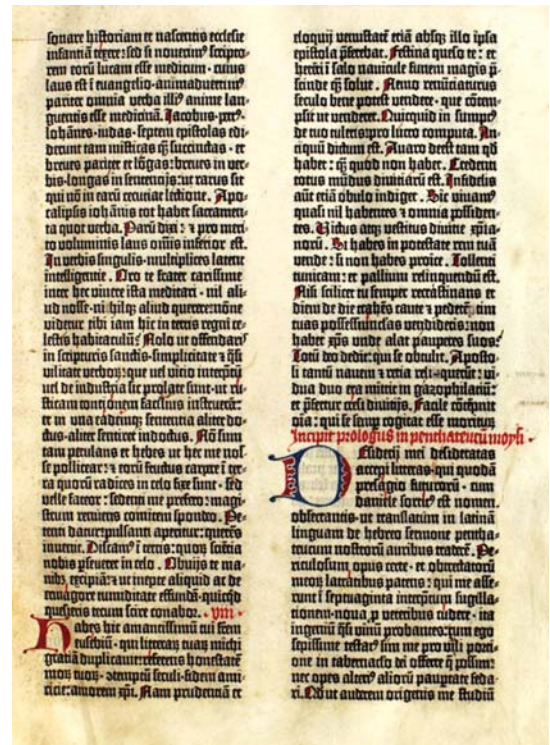 sonare historiam et nascentis ecclesie
infantiā texere: sed si noverim⁹ scripto-
rem eorū lucam esse medicum · cuius
laus est ī euangelio · animaduertim⁹
pariter omnia verba illi⁹ anime lan-
guentis esse medicinā. Jacobus · petr⁹
Iohānes · iudas · septem epistolas edi-
derunt tam misticas q̄ succinctas · et
breues pariter et lōgas: breues in ver-
bis · longas in sentencijs: ut rarus sit
qui nō in earū cecuciat lectione. Apo-
calipsis iohānis tot habet sacramen-
ta quot verba. Parū dixi: ⁊ pro meri-
to voluminis laus omīs inferior est.
In verbis singulis · multiplices latent
intelligentie. Oro te frater carissime
inter hec vivere · ista meditari · nil ali-
ud nosse · nihilq; aliud querere: nōne
videtur tibi iam hic in terris regni ce-
lestis habitaculū? Nolo ut offendaris
in scripturis sanctis · simplicitate ⁊ q̄si
vilitate verboꝝ: que vel vicio interpretū
vel de industria sic prolate sunt · ut ru-
sticam contionem facilius instruerēt:
et in una eademq; sententia aliter doc-
tus · aliter sentiret indoctus. Nō sum
tam petulans et hebes ut hec me nos-
se pollicear: ⁊ eorū fructus carpere ī ter-
ra quorū radices in celo fixe sunt · sed
velle fateor: sedenti me prefero: magi-
strum renuens comitem spondeo. Pe-
tenti datur: pulsanti aperitur: querēs
invenit. Discam⁹ ī terris: quoꝝ sciētia
nobis pseueret in celo. Obuijs te ma-
nib; excipiā: ⁊ ut inepte aliquid ac de
tumiditate effundā · quicqd
quesieris tecum scire conabor. · viii ·
Habes hic amantissimū tui frēm
eusebiū · qui litteraꝝ tuaꝝ michi
gratiā duplicavit: referens honestatē
moꝝ tuoꝝ · ⁊temptū seculi · fidem ami-
cicie: amorem xp̄i. Nam prudentiā et
eloquij venustatē etiā absq; illo ip̄a
epistola p̄ferebat. Festina queso te: et
herēti ī salo navicule funem magis p̄-
scinde q̄ solue. Nemo renūciaturus
seculo bene potest vendere · que cōtem-
psit ut venderet. Quicquid in sumpt⁹
de tuo tuleris: pro lucro computa. An-
tiquū dictum est. Auaro deest tam qd
habet: q̄ quod non habet. Credenti
totus mūdus diuiciaꝝ est. Infidelis
autē etiā obulo indiget. Sic vivam⁹
quasi nil habentes ⁊ omnia possiden-
tes. Victus atq; vestitus divitie xp̄ia-
norū. Si habes in potestate rem tuā
vende: si non habes proice. Tollenti
tunicam: et pallium relinquendū est.
Nisi scilicet tu semper recrastinans et
diem de die trahēs caute ⁊ pedetētim
tuas possessiunculas vendideris: non
habet xp̄s unde alat pauperes suos:
Totū deo dedit: qui se obtulit. Aposto-
li tantū navem ⁊ retia reliquerūt: vi-
dua duo era mittit in gazophilaciū:
et p̄fertur cresi divitijs. Facile cōtēpnit
oīa: qui se semp cogitat esse moriturū
Incipit prologus in penthateucū moysi.
Desiderij mei desideratas
accepi litteras · qui quodā
presagio futurorū · cum
daniele sortit⁹ est nomen ·
obsecrantis · ut translatum in latinā
linguam de hebreo sermone pentha-
teucum nostrorū auribus traderē. Pe-
riculosum opus certe · et obtrectatorū
meoꝝ latratibus patens: qui me asse-
runt ī septuaginta interpretum sugilla-
tionem · nova p veteribus cudere · ita
ingeniū q̄si vinū probantes: cum ego
sepissime testat⁹ sim me pro virili portī-
one in tabernaclo dei offerre q̄ possim:
nec opes alteri⁹ aliorū paupertate feda-
ri. Qd ut auderem origenis me studiū